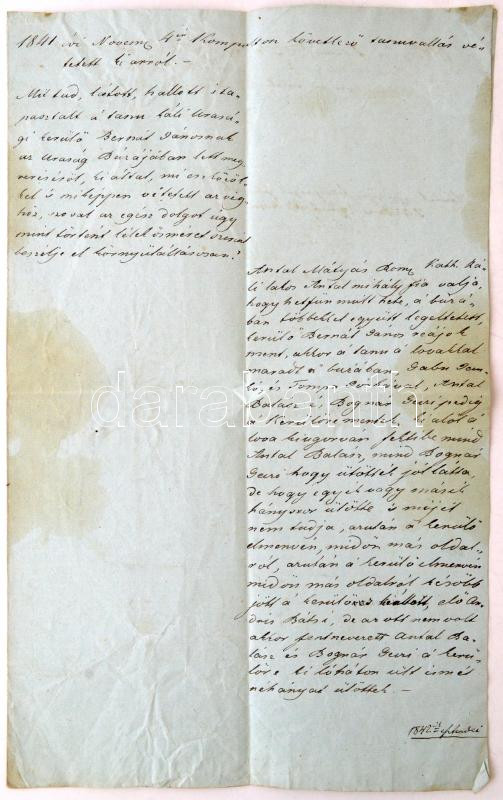 1841 évi Novem 4én Kompolton következő tanuvallás vé-
tetett ki arról. -
Mit tud, látott, hallott s ta-
pasztalt a tanu káli Urasá-
gi kerülő Bernát Jánosnak
az Uraság Búrájában lett meg
veréséről, ki által, mi eszközök-
kel s miképpen vétetett az vég-
hez, szoval az egész dolgot úgy
mint történt lélek ismérete szerint
beszélje el környülállásosan?
Antal Mátyás Rom. Kath. ká-
li lakos Antal Mihály fia valja,
hogy hetfün mult hete, a búrá-
ban többekkel együtt legeltetett,
kerülő Bernát János reájok
ment, akkor a tanu a lovakkal
maradt a burában Gabu
és Tompa Antal
Balás és Bognár Gyuri pedig
a kerülőre mentek, ki alól a
lova kiugorván feltibe mind
Antal Balás, mind Bognár
Gyuri hogy ütötték jól látta
de hogy egyik vagy másik
hányszor ütötte is méjét
nem tudja, azután a kerülő
elmenvén, midőn más oldal-
ról, azután a kerülő elmenvén
midőn más oldalról később
jött a kerülőre, elő An-
drás Bátsi, de az ott nem volt
akkor fentnevezett Antal Ba-
lász és Bognár Gyuri a kerü-
lőre ki lóháton ült ismét
néhányat ütöttek. -
darabanth